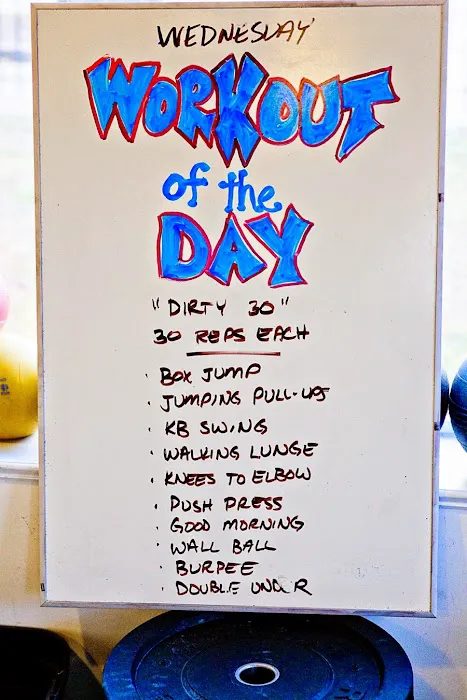 WEDNESDAY
WORKOUT
of the
DAY
"DIRTY 30"
30 REPS EACH
· BOX JUMP
· JUMPING PULL-UPS
· KB SWING
· WALKING LUNGE
· KNEES TO ELBOW
· PUSH PRESS
· GOOD MORNING
· WALL BALL
· BURPEE
· DOUBLE UNDER